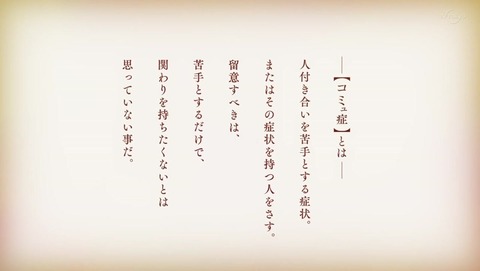 ―【コミュ症】とは―
人付き合いを苦手とする症状。
またはその症状を持つ人をさす。
留意すべきは、
苦手とするだけで、
関わりを持ちたくないとは
思っていない事だ。